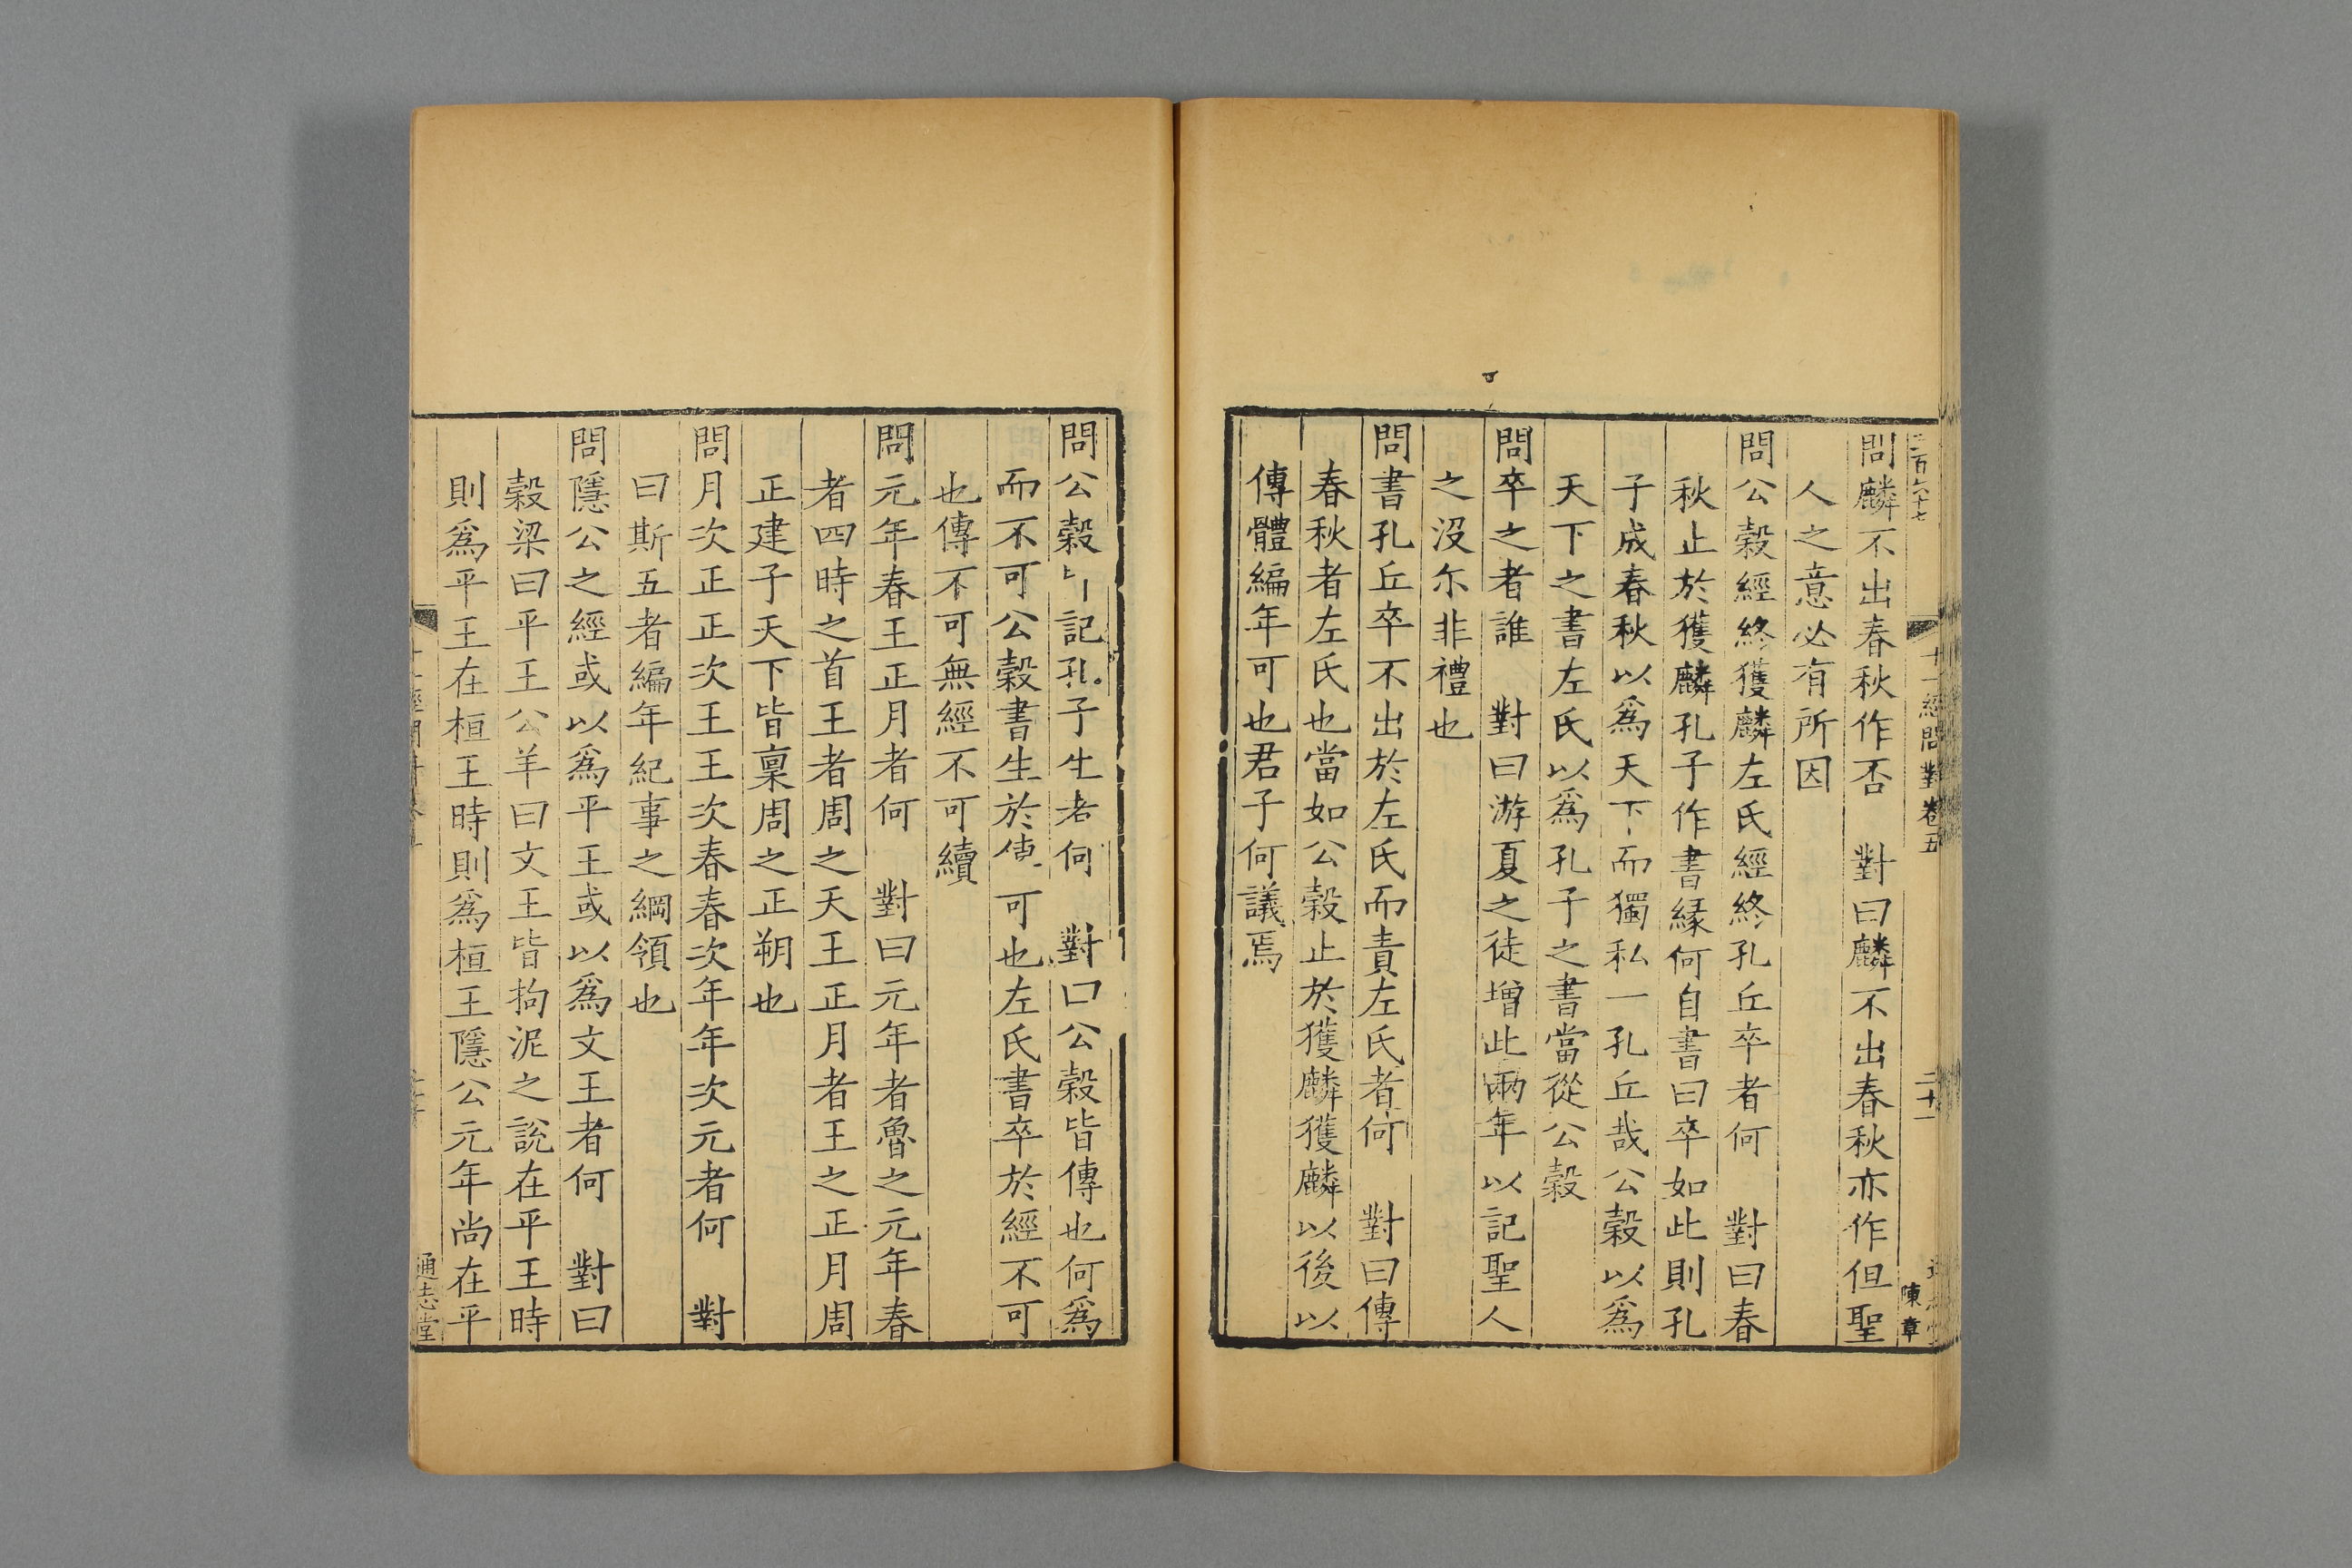 二百六十七
十一經問對卷五
二十一
陳章
問麟不出春秋作否　對曰麟不出春秋亦作但聖
人之意必有所因
問公穀經終獲麟左氏經終孔丘卒者何　對曰春
秋止於獲麟孔子作書緣何自書曰卒如此則孔
子成春秋以爲天下而獨私一孔丘哉公穀以爲
天下之書左氏以爲孔子之書當從公穀
問卒之者誰　對曰游夏之徒增此兩年以記聖人
之沒尒非禮也
問書孔丘卒不出於左氏而責左氏者何　對曰傳
春秋者左氏也當如公穀止於獲麟獲麟以後以
傳體編年可也君子何議焉
問公穀記孔子生者何　對曰公穀皆傳也何爲
而不可公穀書生於傳可也左氏書卒於經不可
也傳不可無經不可續
問元年春王正月者何　對曰元年者魯之元年春
者四時之首王者周之天王正月者王之正月周
正建子天下皆稟周之正朔也
問月次正正次王王次春春次年年次元者何　對
曰斯五者編年紀事之綱領也
問隱公之經或以爲平王或以爲文王者何　對曰
穀梁曰平王公羊曰文王皆拘泥之說在平王時
則爲平王在桓王時則爲桓王隱公元年尚在平
通志堂